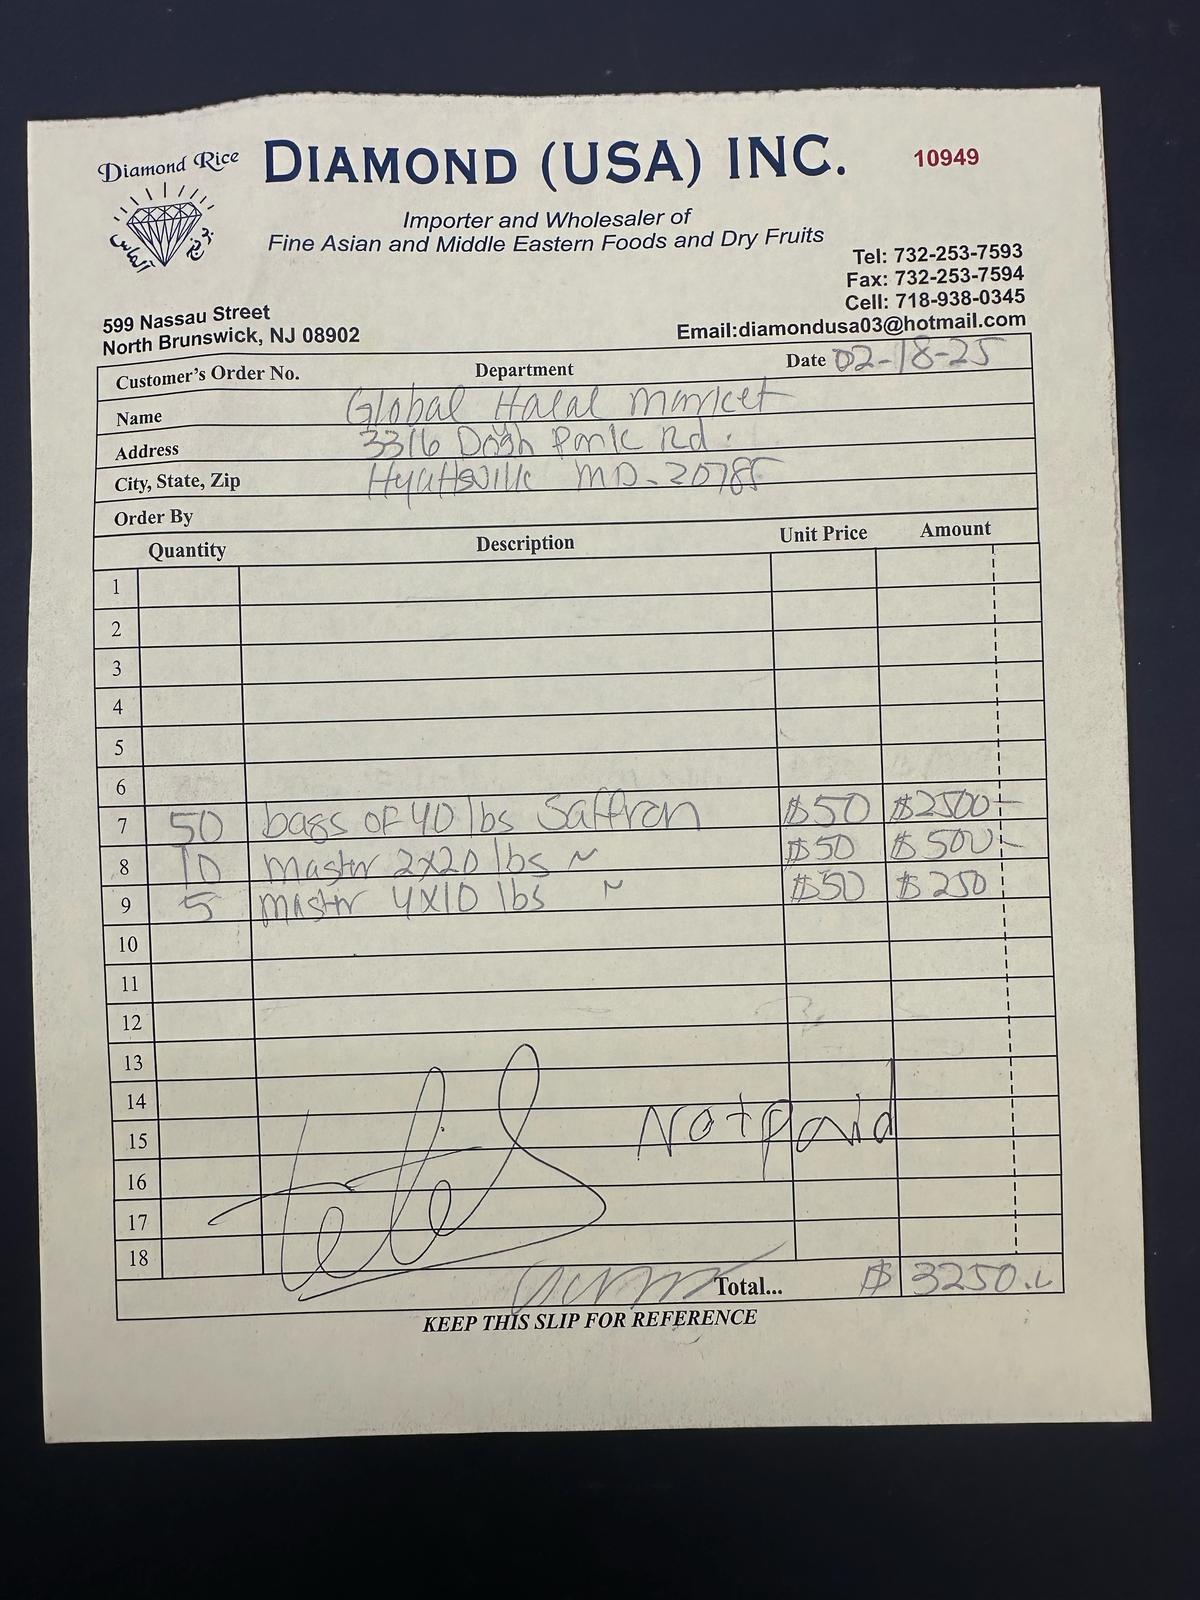 Diamond Rice
DIAMOND (USA) INC.
10949
الماس
Importer and Wholesaler of
Fine Asian and Middle Eastern Foods and Dry Fruits
Tel: 732-253-7593
Fax: 732-253-7594
Cell: 718-938-0345
Email:diamondusa03@hotmail.com
599 Nassau Street
North Brunswick, NJ 08902
Customer's Order No. Department Date 02-18-25
Name Global Halal Market
Address 3316 Park Rd.
City, State, Zip Hyattsville MD-20785
Order By
Quantity Description Unit Price Amount
1
2
3
4
5
6
7 50 bags OF 40 lbs Saffron $50 $2500-
8 10 Master 2x20 lbs ~ $50 $500-
9 5 Master 4x10 lbs ~ $50 $250
10
11
12
13
14
15 Not paid
16
17
18
Total... $ 3250.
KEEP THIS SLIP FOR REFERENCE